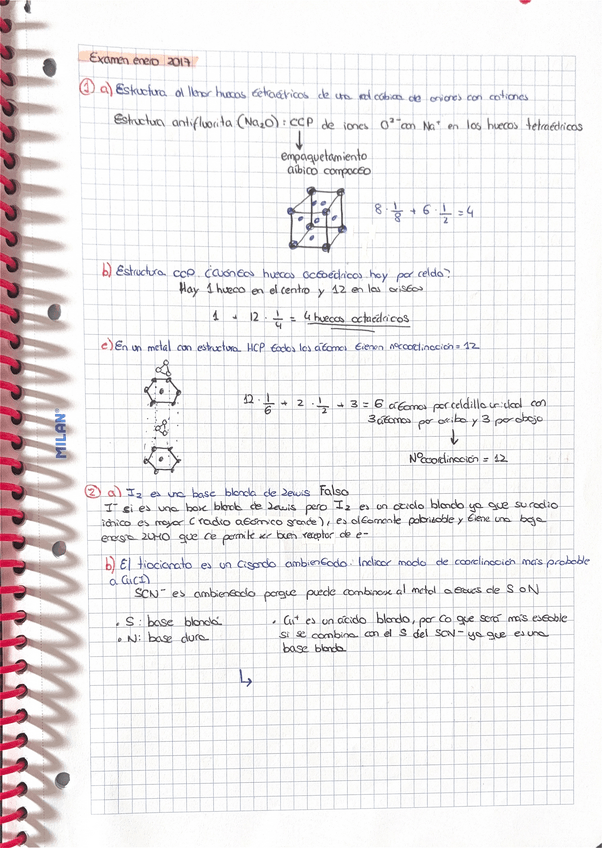 Examen enero 2017
① a) Estructura al llenar huecos tetraédricos de una red cúbica de aniones con cationes
Estructura antifluorita (Na₂O): CCP de iones O²⁻ con Na⁺ en los huecos tetraédricos
↓
empaquetamiento
cúbico compacto
8 · 1/8 + 6 · 1/2 = 4
b) Estructura CCP. ¿Cuántos huecos octaédricos hay por celda?
Hay 1 hueco en el centro y 12 en las aristas
1 + 12 · 1/4 = 4 huecos octaédricos
c) En un metal con estructura HCP todos los átomos tienen nº coordinación = 12
12 · 1/6 + 2 · 1/2 + 3 = 6 átomos por celdilla unidad con
3 átomos por arriba y 3 por abajo
↓
Nº coordinación = 12
MILAN
② a) I₂ es una base blanda de Lewis Falso
I⁻ si es una base blanda de Lewis pero I₂ es un ácido blando ya que su radio
iónico es mayor (radio atómico grande), es altamente polarizable y tiene una baja
energía LUMO que le permite ser buen receptor de e-
b) El tiocianato es un ligando ambientado. Indicar modo de coordinación más probable
a Cu(I)
SCN⁻ es ambientado porque puede combinarse al metal a través de S o N
• S: base blanda
• N: base dura
• Cu⁺ es un ácido blando, por lo que será más estable
si se combina con el S del SCN⁻ ya que es una
base blanda
↳